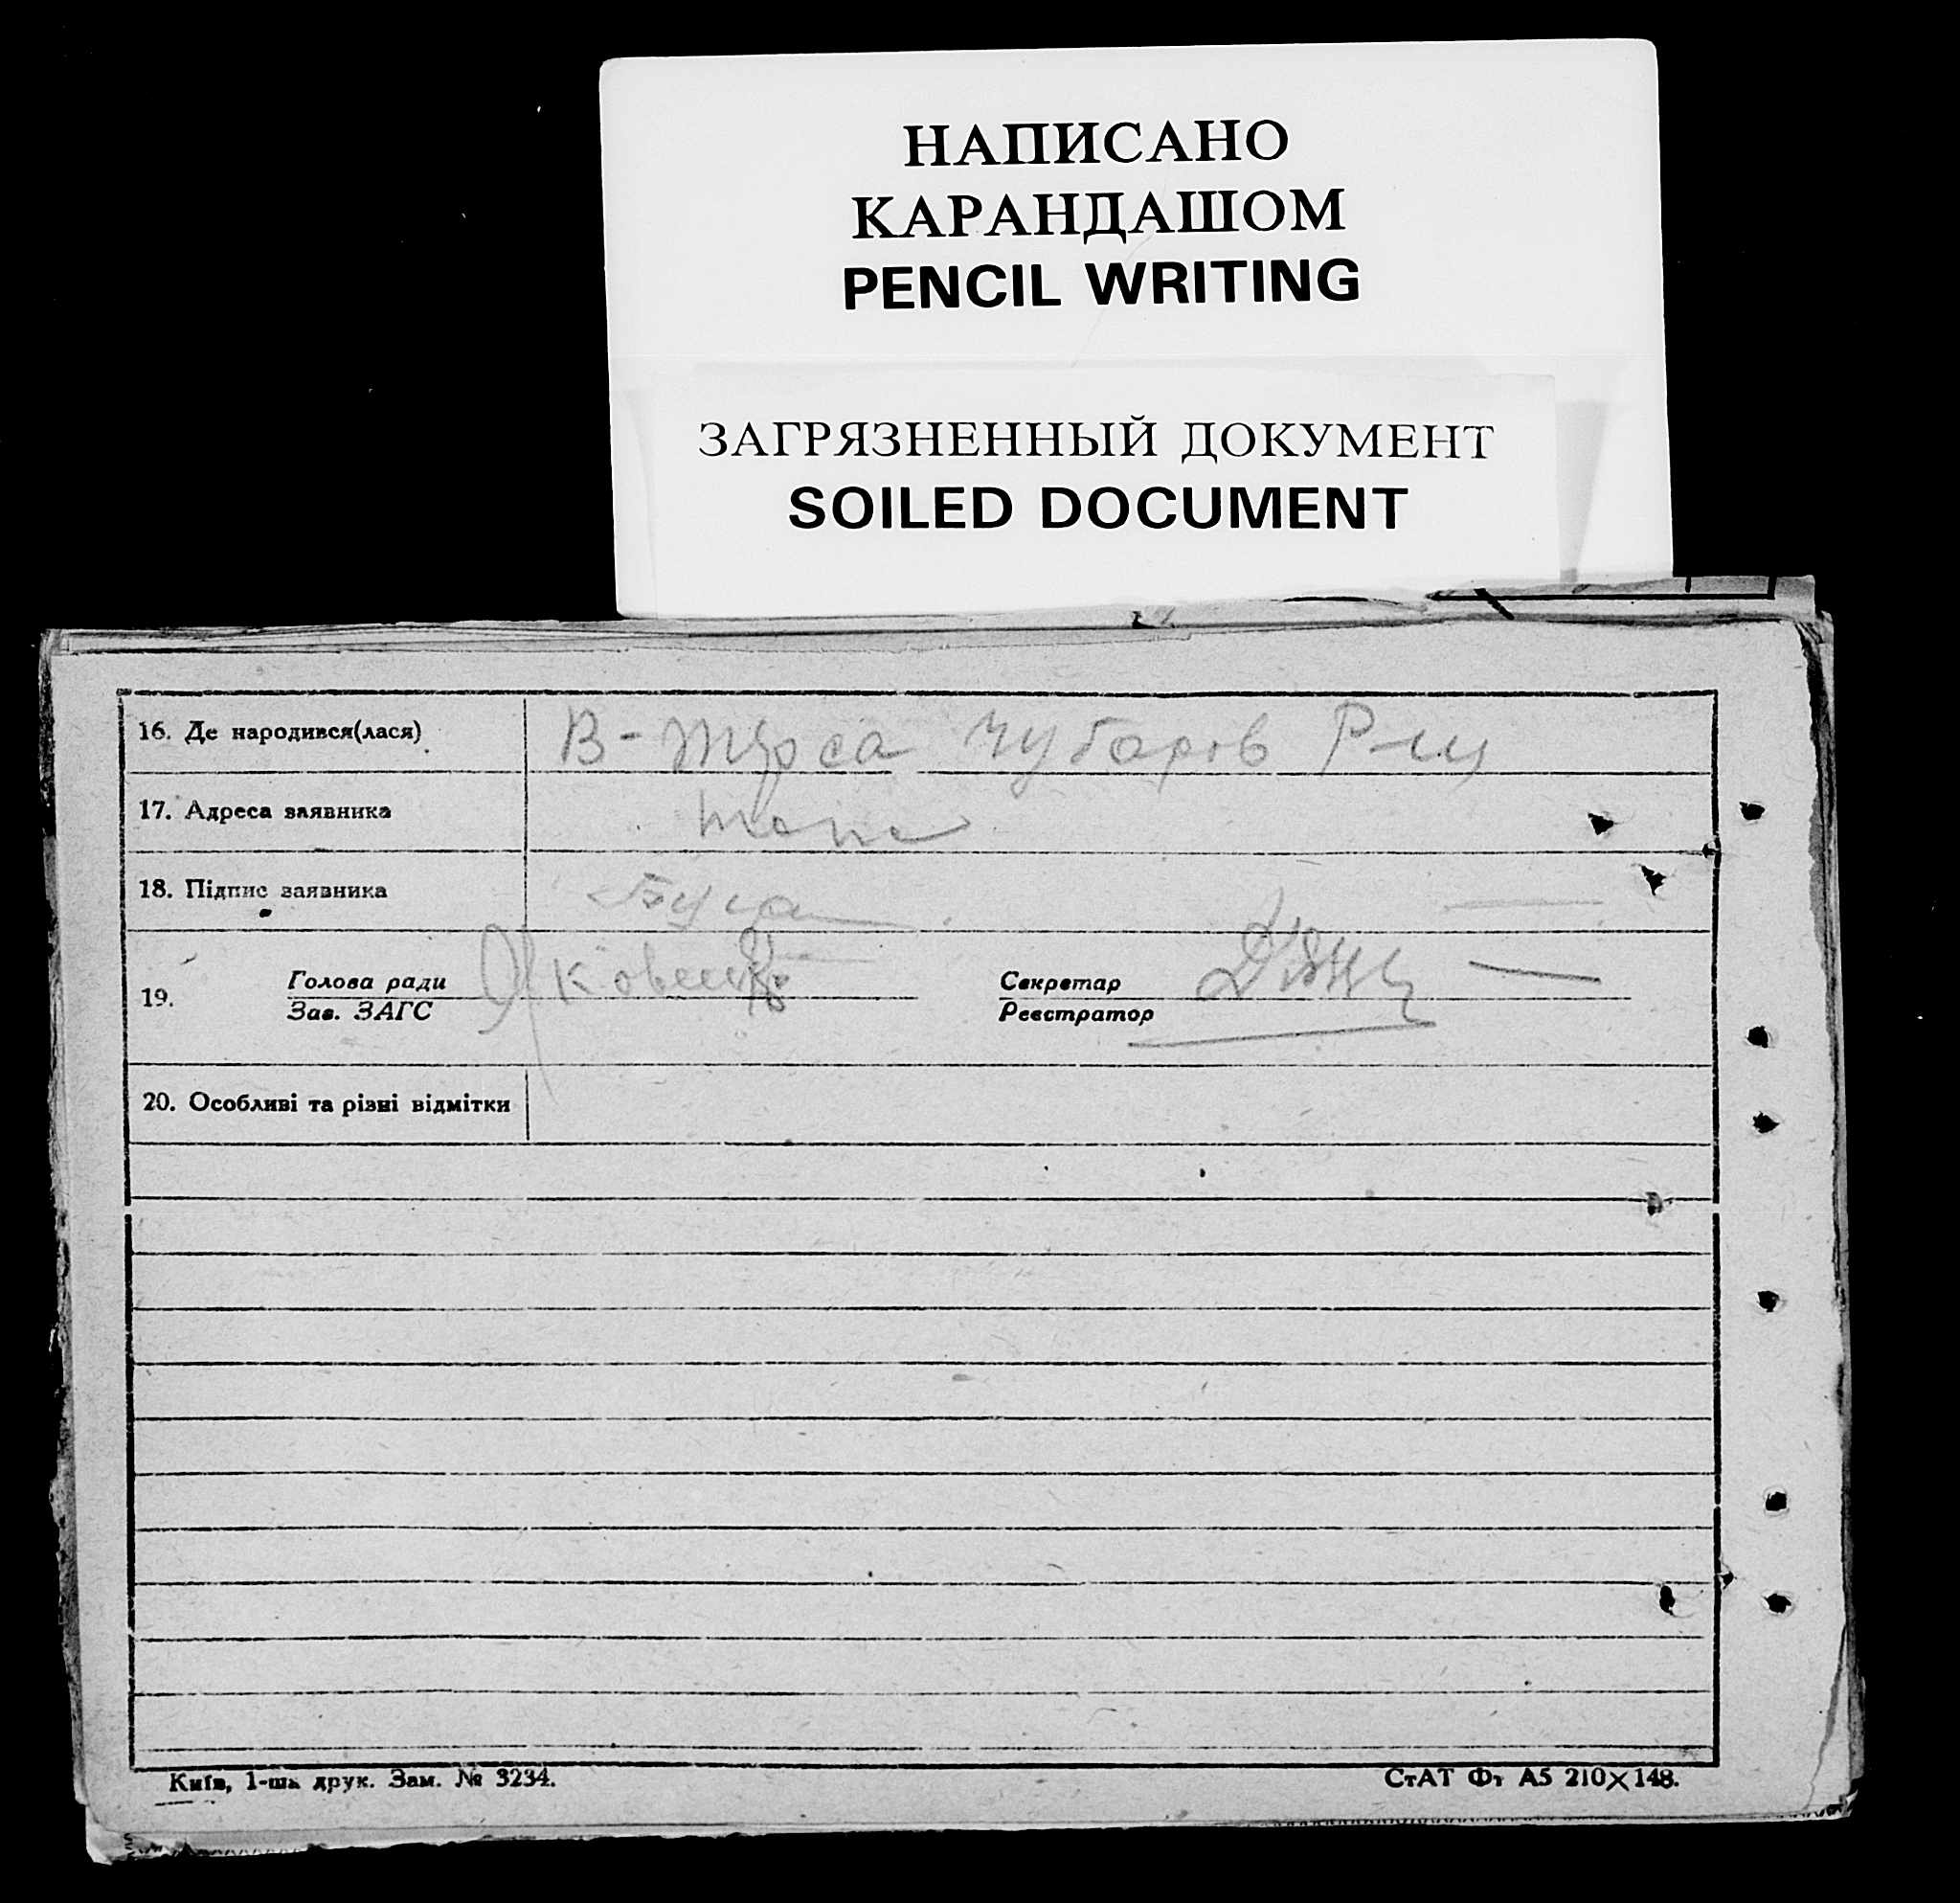 НАПИСАНО
КАРАНДАШОМ
PENCIL WRITING
ЗАГРЯЗНЕННЫЙ ДОКУМЕНТ
SOILED DOCUMENT
16. Де народився(лася) В-Турса Чубарів Р-ну
17. Адреса заявника
18. Підпис заявника
19. Голова ради Яковенко Секретар
Зав. ЗАГС Реєстратор
20. Особливі та різні відмітки
Київ, 1-ша друк. Зам. № 3234. СтАТ Фт А5 210×148.